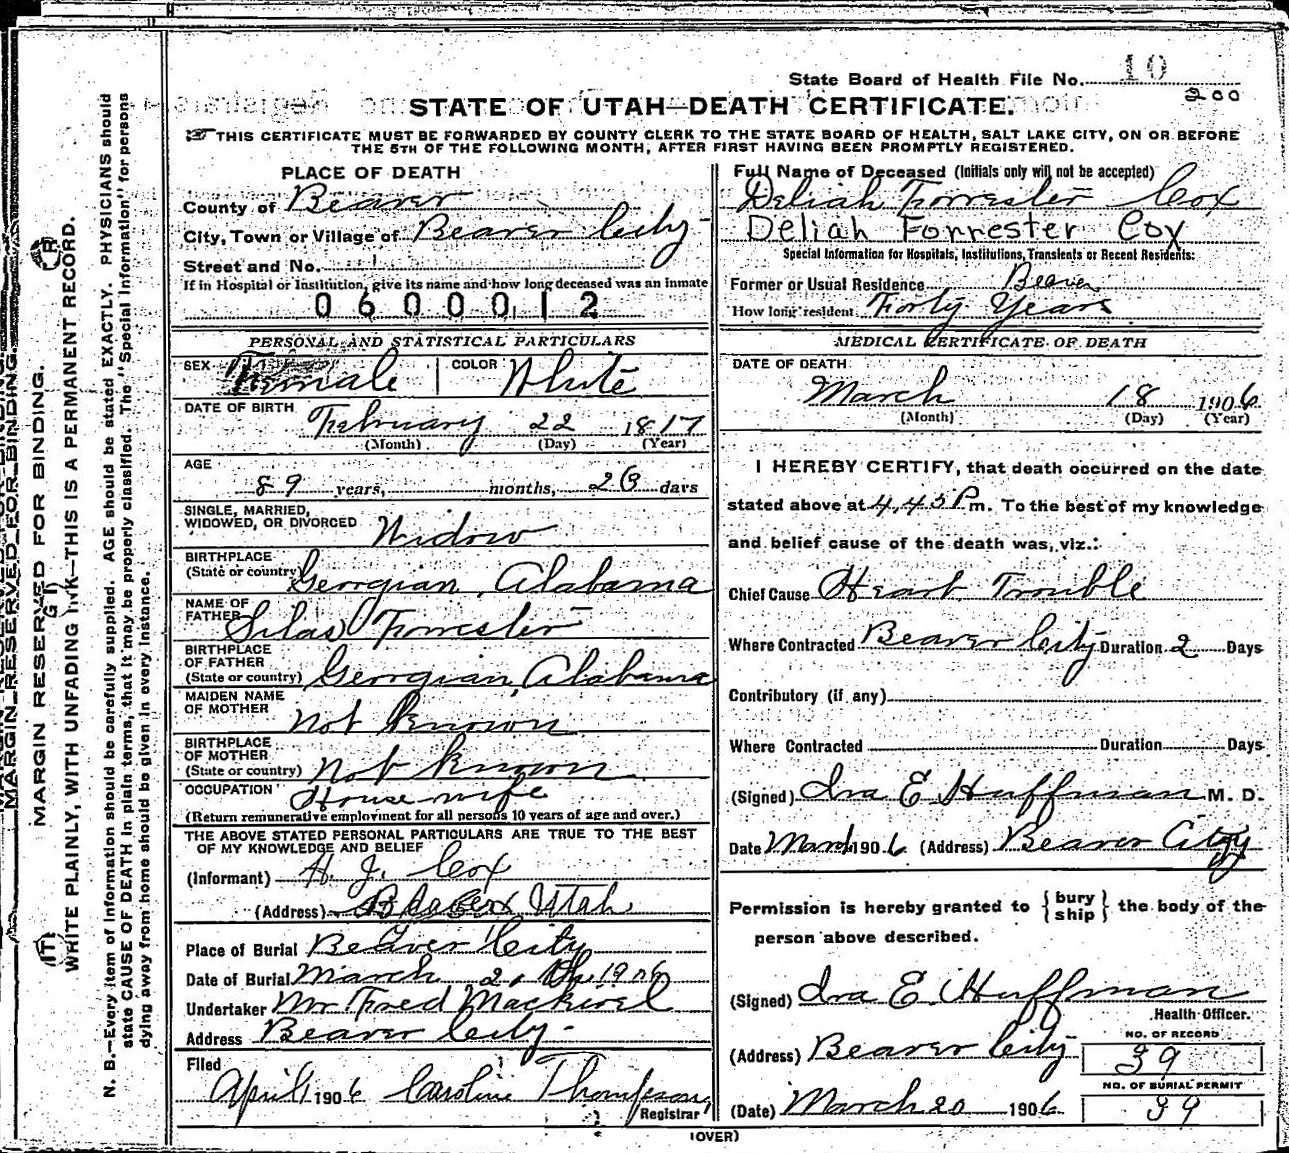 State Board of Health File No. 10
200
STATE OF UTAH—DEATH CERTIFICATE.
☞ THIS CERTIFICATE MUST BE FORWARDED BY COUNTY CLERK TO THE STATE BOARD OF HEALTH, SALT LAKE CITY, ON OR BEFORE
THE 5TH OF THE FOLLOWING MONTH, AFTER FIRST HAVING BEEN PROMPTLY REGISTERED.
PLACE OF DEATH
County of Beaver
City, Town or Village of Beaver City
Street and No.
If in Hospital or Institution, give its name and how long deceased was an inmate
0600012
PERSONAL AND STATISTICAL PARTICULARS
SEX Female COLOR White
DATE OF BIRTH February 22 1817
(Month) (Day) (Year)
AGE
89 years, months, 26 days
SINGLE, MARRIED,
WIDOWED, OR DIVORCED Widow
BIRTHPLACE
(State or country) Georgian, Alabama
NAME OF
FATHER Silas Forrester
BIRTHPLACE
OF FATHER
(State or country) Georgian, Alabama
MAIDEN NAME
OF MOTHER not known
BIRTHPLACE
OF MOTHER
(State or country) not known
OCCUPATION House wife
(Return remunerative employment for all persons 10 years of age and over.)
THE ABOVE STATED PERSONAL PARTICULARS ARE TRUE TO THE BEST
OF MY KNOWLEDGE AND BELIEF
(Informant) H. J. Cox
(Address) Utah
Place of Burial Beaver City
Date of Burial March 1906
Undertaker Mr Fred
Address Beaver City
Filed
April 1906 Caroline Thompson
Registrar
Full Name of Deceased (Initials only will not be accepted)
Deliah Forrester Cox
Deliah Forrester Cox
Special Information for Hospitals, Institutions, Transients or Recent Residents:
Former or Usual Residence Beaver
How long resident Forty Years
MEDICAL CERTIFICATE OF DEATH
DATE OF DEATH
March 18 1906
(Month) (Day) (Year)
I HEREBY CERTIFY, that death occurred on the date
stated above at 4,45 P m. To the best of my knowledge
and belief cause of the death was, viz.:
Chief Cause Heart Trouble
Where Contracted Beaver City Duration 2 Days
Contributory (if any)
Where Contracted Duration Days
(Signed) Ira E Huffman M. D.
Date March 1906 (Address) Beaver City
Permission is hereby granted to { bury ship } the body of the
person above described.
(Signed) Ira E Huffman
Health Officer.
(Address) Beaver City
NO. OF RECORD
39
NO. OF BURIAL PERMIT
39
(Date) March 20 1906
(OVER)
MARGIN RESERVED FOR BINDING.
MARGIN RESERVED FOR BINDING.
WRITE PLAINLY, WITH UNFADING INK—THIS IS A PERMANENT RECORD.
N. B.—Every item of information should be carefully supplied. AGE should be stated EXACTLY. PHYSICIANS should
state CAUSE OF DEATH in plain terms, that it may be properly classified. The "Special Information" for persons
dying away from home should be given in every instance.